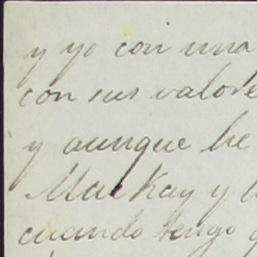 y yo con una
con sus valore
y aunque he
MacKay y l
cuando tengo